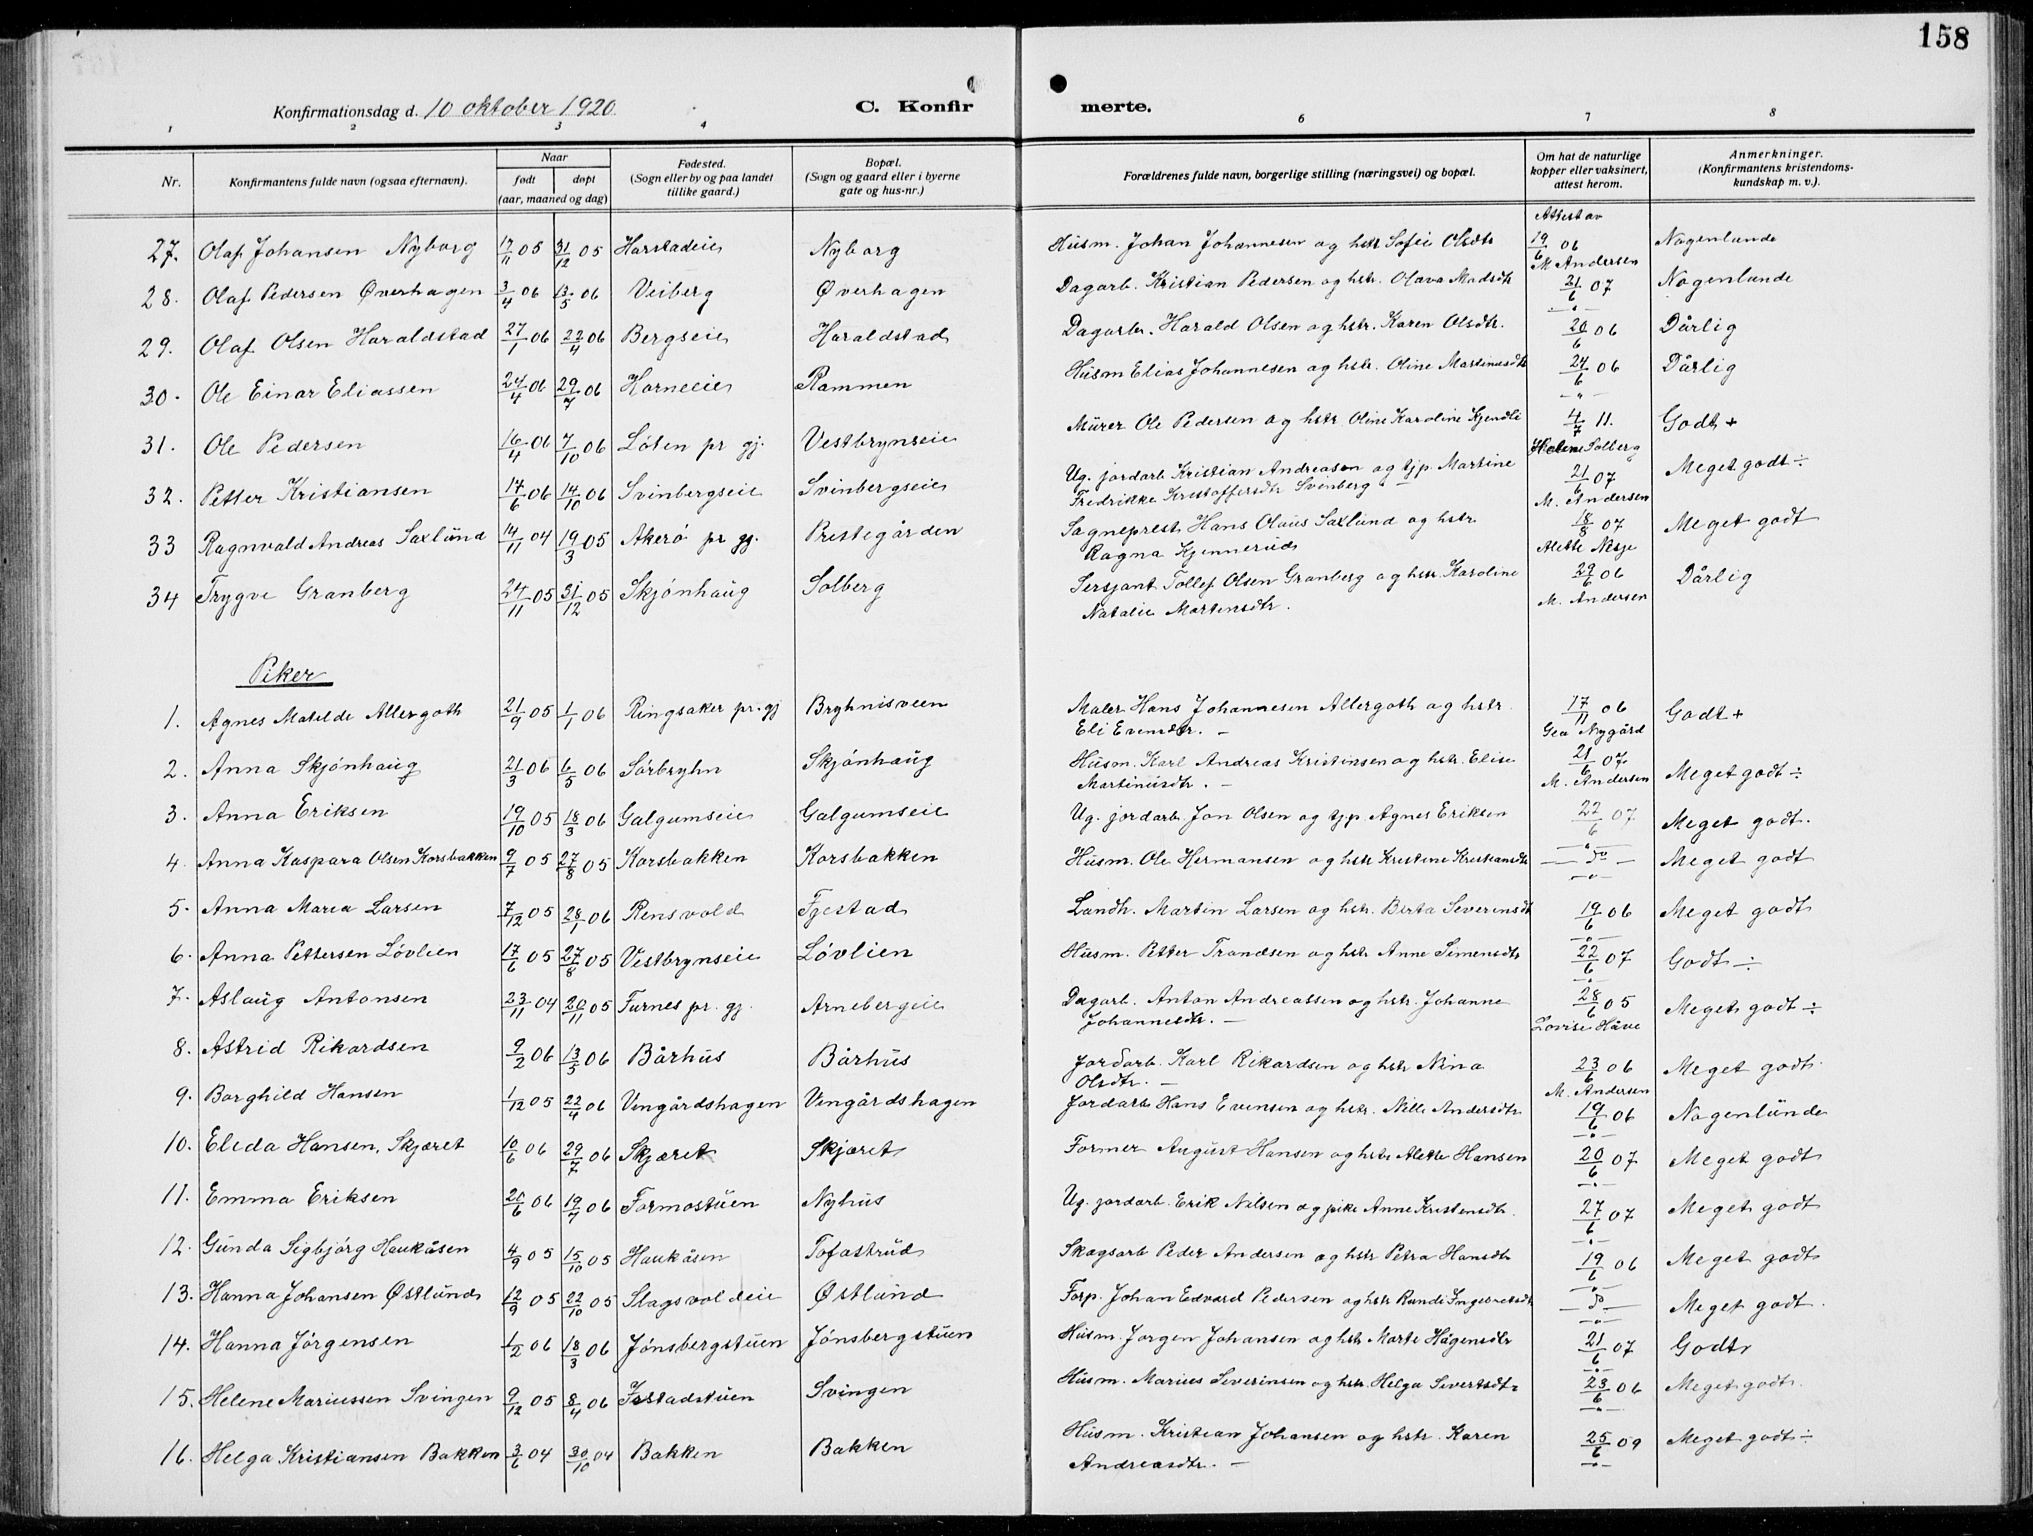 158
Konfirmationsdag d. 10 oktober 1920.
C. Konfirmerte.
1 2 3 4 6 7 8
Nr.
Konfirmantens fulde navn (ogsaa efternavn).
Naar
født døpt
(aar, maaned og dag)
Fødested.
(Sogn eller by og paa landet
tillike gaard.)
Bopæl.
(Sogn og gaard eller i byerne
gate og hus-nr.)
Forældrenes fulde navn, borgerlige stilling (næringsvei) og bopæl.
Om hat de naturlige
kopper eller vaksinert,
attest herom.
Anmerkninger.
(Konfirmantens kristendoms-
kundskap m. v.).
Attest av
27. Olaf Johansen Nyborg 17/11 05 31/12 05 Harstadeie Nyborg Husm. Johan Johannesen og hstr Sofie Olsdtr 19/6 06 Nogenlunde
M Andersen
28. Olaf Pedersen Øverhagen 3/4 06 13/5 06 Veiberg Øverhagen Dagarb. Kristian Pedersen og hstr. Olava Madsdtr 21/6 07 Nogenlunde
-"-
29. Olaf Olsen Haraldstad 27/1 06 22/4 06 Bergseie Haraldstad Dagarb. Harald Olsen og hstr. Karen Olsdtr. 20/6 06 Dårlig
30. Ole Einar Eliassen 24/4 06 29/7 06 Horneeie Rammen Husm Elias Johannesen og hstr. Oline Martinusdtr 24/6 06 Dårlig
-"-
31. Ole Pedersen 16/4 06 7/10 06 Løten pr gj. Vestbrynseie Murer Ole Pedersen og hstr Oline Karoline Kjendli 4/7 11. Godt +
Helene Solberg
32. Petter Kristiansen 14/6 06 14/10 06 Svinbergseie Svinbergseie Ug. jordarb Kristian Andreason og tjp Martine 21/6 07 Meget godt ÷
Fredrikke Kristoffersdtr Svinberg. – M. Andersen
33 Ragnvald Andreas Saxlund 14/11 04 19/3 05 Akerö pr gj. Prestegården Sogneprest Hans Olaus Saxlund og hstr 18/8 07 Meget godt
Ragna Kjennerud Alette Nesje
34 Trygve Granberg 24/11 05 31/12 05 Skjönhaug Solberg Sersjant Tollef Olsen Granberg og hstr. Karoline 29/6 06 Dårlig
Natalie Martensdtr. M. Andersen
Piker
1. Agnes Matilde Allergoth 21/9 05 1/1 06 Ringsaker pr. gj Bryhnisveen Maler Hans Johannesen Allergoth og hstr 17/11 06 Godt +
Eli Evensdtr. – Gea Nygård
2. Anna Skjönhaug 21/3 06 6/5 06 Sörbryhn Skjönhaug Husm. Karl Andreas Kristinsen og hstr. Elise 21/6 07 Meget godt ÷
Martinusdtr. – M. Andersen
3. Anna Eriksen 19/10 05 18/3 06 Galgumseie Galgumseie Ug. jordarb Jon Olsen og tjp Agnes Eriksen 22/6 07 Meget godt.
-"-
4. Anna Kaspara Olsen Korsbakken 9/7 05 27/8 05 Korsbakken Korsbakken Husm. Ole Hermansen og hstr Kristine Kristiansdtr – do – Meget godt
-"-
5. Anna Marea Larsen 7/12 05 28/1 06 Rensvold Fjestad Landh. Martin Larsen og hstr. Berta Severinsdt 19/6 06 Meget godt
-"-
6. Anna Pettersen Løvlien 17/6 05 27/8 05 Vestbrynseie Løvlien Husm. Petter Trondsen og hstr Anne Simensdtr 22/6 07 Godt ÷
-"-
7. Aslaug Antonsen 23/11 04 20/11 05 Furnes pr. gj. Arnebergeie Dagarb. Anton Andreassen og hstr. Johanne 28/6 05 Meget godt ÷
Johannesdtr. – Lovise Håve
8. Astrid Rikardsen 9/2 06 13/5 06 Bårhus Bårhus Jordarb. Karl Rikardsen og hstr Nina 23/6 06 Meget godt
Olsdtr. – M. Andersen
9. Borghild Hansen 1/12 05 22/4 06 Vengårdshagen Vengårdshagen Jordarb Hans Evensen og hstr. Nille Andersdtr 19/6 06 Nogenlunde
-"-
10. Eleda Hansen, Skjæret 10/6 06 29/7 06 Skjæret Skjæret Former August Hansen og hstr Alette Hansen 20/6 07 Meget godt
-"-
11. Emma Eriksen 20/6 06 19/7 06 Formostuen Nyhus Ug. jordarb. Erik Nilsen og pike Anne Kristensdtr. 27/6 07 Meget godt
-"-
12. Gunda Sigbjörg Haukåsen 4/9 05 15/10 05 Haukåsen Tofastrud Skogsarb Peder Andersen og hstr Petra Hansdtr 19/6 06 Meget godt
-"-
13. Hanna Johansen Østlund 12/9 05 22/10 05 Slagsvoldeie Østlund Forp. Johan Edvard Pedersen og hstr Randi Ingebretsdtr – do – Meget godt.
-"-
14. Hanna Jörgensen 1/2 06 18/3 06 Jönsbergstuen Jönsbergstuen Husm. Jorgen Johansen og hstr Marte Hågensdtr 21/6 07 Godt
-"-
15. Helene Mariussen Svingen 9/12 05 8/4 06 Svingen Husm. Marius Severinsen og hstr. Helga Sivertsdtr 23/6 06 Meget godt.
-"-
16. Helga Kristiansen Bakken 3/6 04 30/10 04 Bakken Bakken Husm. Kristian Johansen og hstr. Karen 25/6 09 Meget godt ÷
Andreasdtr. – -"-